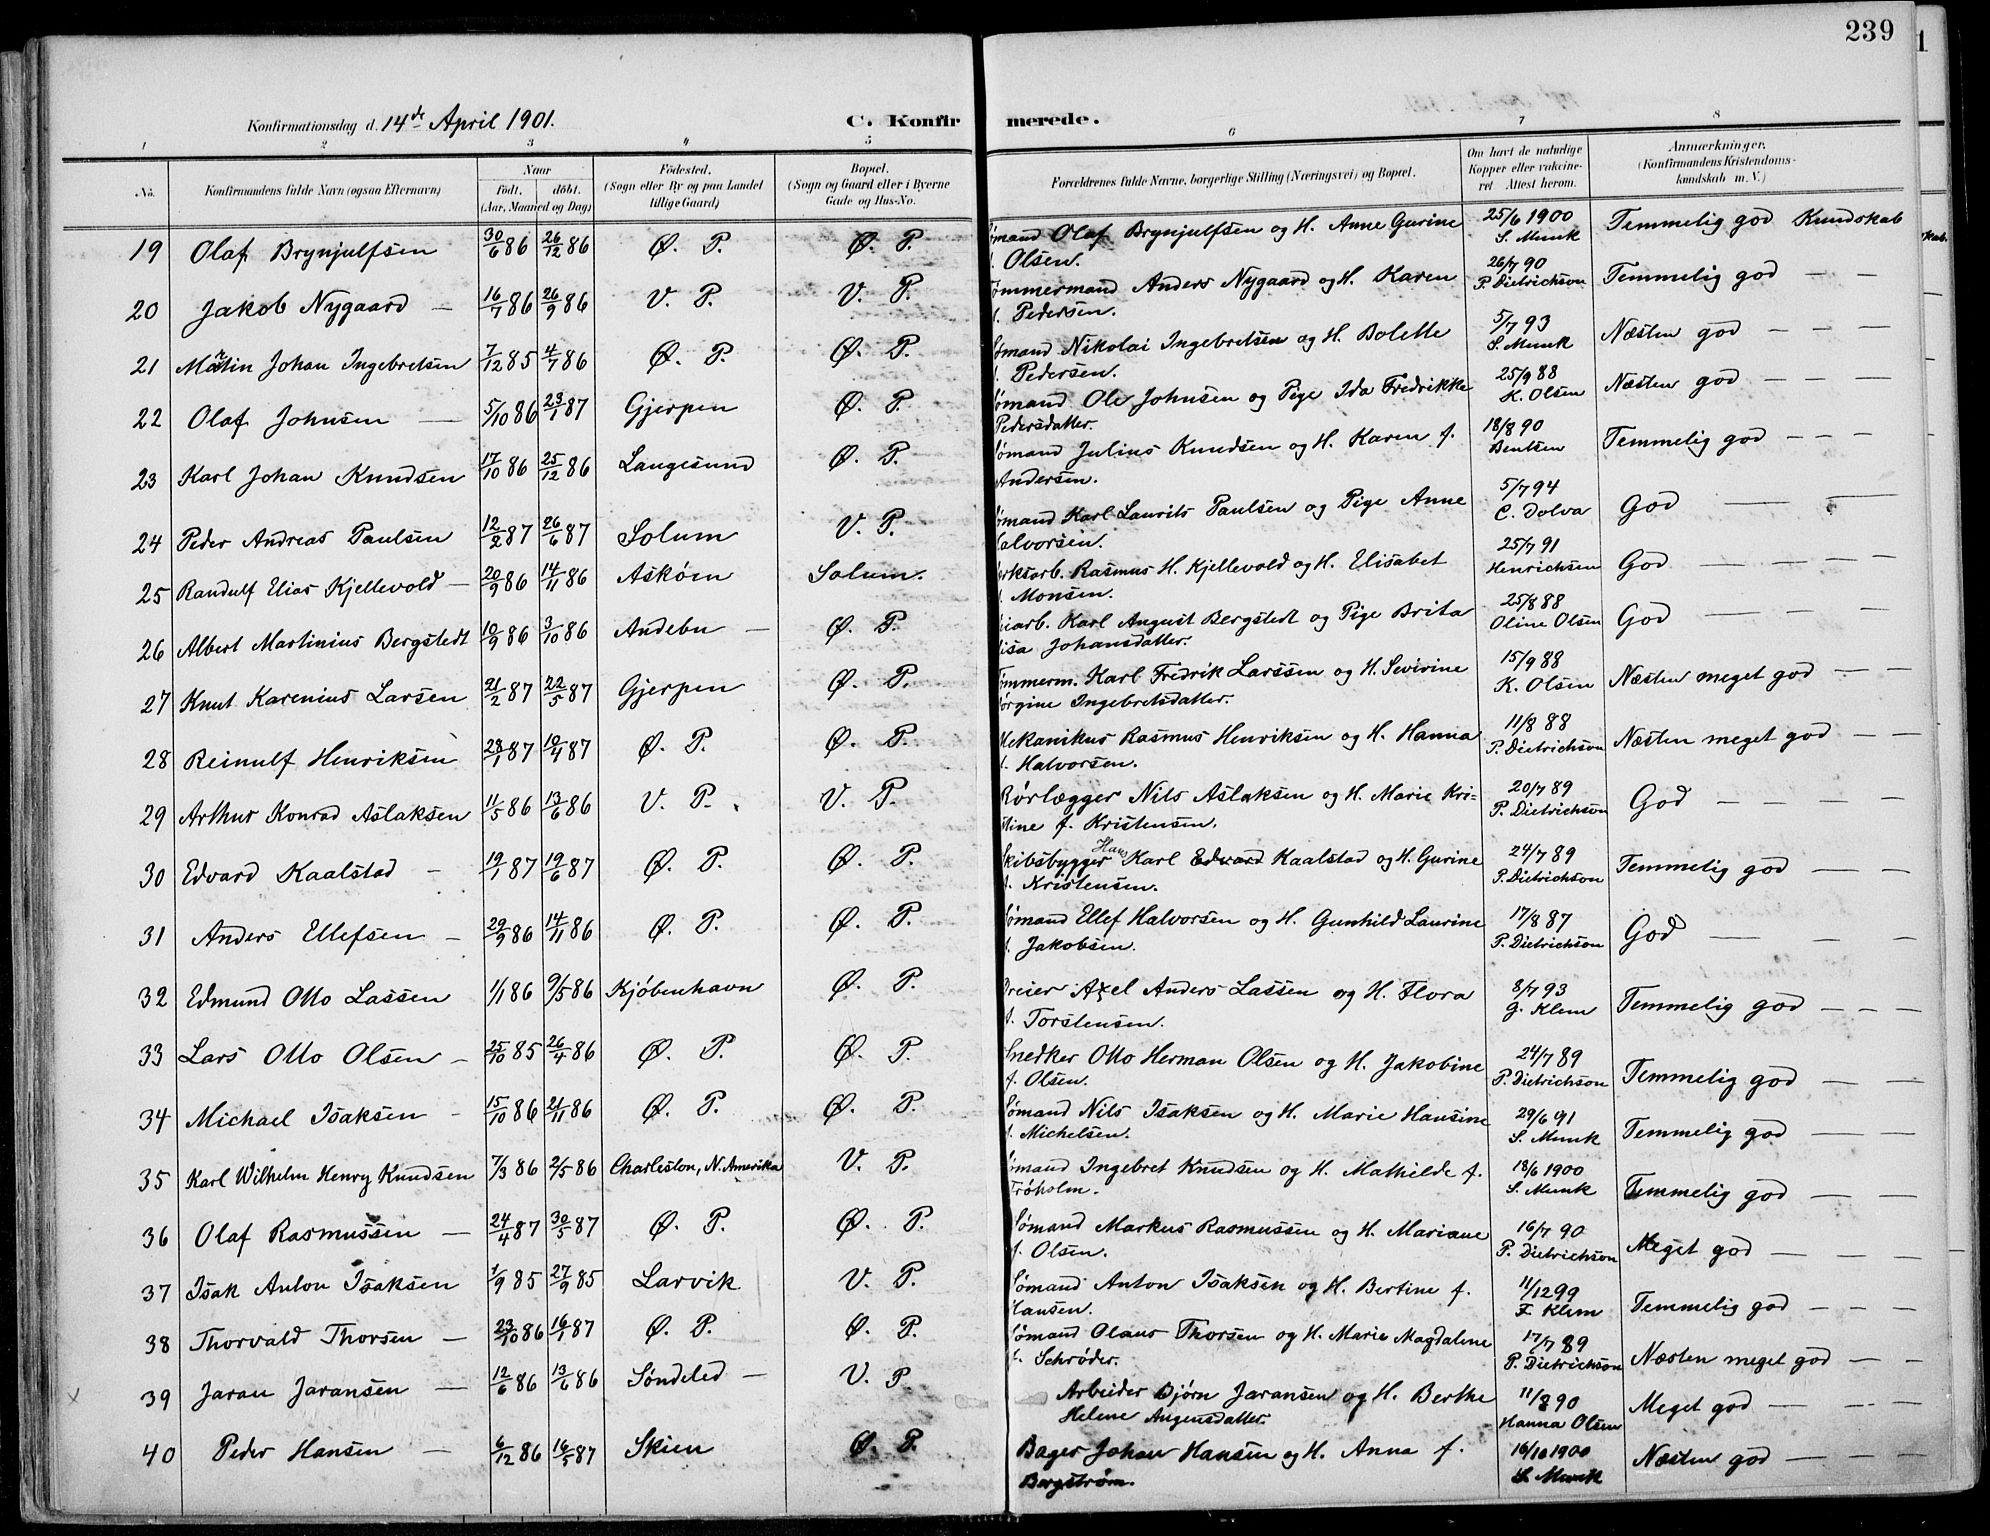 239
Konfirmationsdag d. 14de April 1901. C. Konfirmerede.
1 2 3 4 5 6 7 8
No. Konfirmandens fulde Navn (ogsaa Efternavn) Naar født. døbt. (Aar, Maaned og Dag) Fødested. (Sogn eller By og paa Landet tillige Gaard) Bopæl. (Sogn og Gaard eller i Byerne Gade og Hus-No. Forældrenes fulde Navne, borgerlige Stilling (Næringsvei) og Bopæl. Om havt de naturlige Kopper eller vakcineret Attest herom. Anmærkninger. (Konfirmandens Kristendomskundskab m. V.)
19 Olaf Brynjulfsen 30/6 86 26/12 86 Ø. P. Ø. P. ømand Olaf Brynjulfsen og H. Anne Gurine 25/6 1900 Temmelig god Kundskab
f. Olsen. S. Munk
20 Jakob Nygaard — 16/7 86 26/9 86 V. P. V. P. ømmermand Anders Nygaard og H. Karen 26/7 90 Temmelig god — —
f. Pedersen. P. Dietrichson
21 Martin Johan Ingebretsen 7/12 85 4/7 86 Ø. P. Ø. P. ømand Nikolai Ingebretsen og H. Bolette 5/7 93 Næsten god — — —
f. Pedersen. S. Munk
22 Olaf Johnsen — 5/10 86 23/1 87 Gjerpen Ø. P. ømand Ole Johnsen og Pige Ida Fredrikke 25/9 88 Næsten god — — —
Pedersdatter. K. Olsen
23 Karl Johan Knudsen 17/10 86 25/12 86 Langesund Ø. P. ømand Julius Knudsen og H. Karen f. 18/8 90 Temmelig god — — —
Andersen. Bentsen
24 Peder Andreas Paulsen 12/2 87 26/6 87 Solum V. P. ømand Karl Laurits Paulsen og Pige Anne 5/7 94 God — —
alvorsen. C. Dolva
25 Randulf Elias Kjellevold — 20/9 86 14/11 86 Askøen Solum. rksarb. Rasmus H. Kjellevold og H. Elisabet 25/7 91 God — — —
f. Monsen. Henrichsen
26 Albert Martinius Bergstedt 10/9 86 3/10 86 Andebu — Ø. P. iarb. Karl August Bergstedt og Pige Brita 25/8 88 God — — —
isa Johansdatter. Oline Olsen
27 Knut Karenius Larsen 21/2 87 22/5 87 Gjerpen Ø. P. ømmerm. Karl Fredrik Larssen og H. Sevirine 15/9 88 Næsten meget god — —
ørgine Ingebretsdatter. K. Olsen
28 Reinulf Henriksen 28/1 87 10/4 87 Ø. P. Ø. P. Mekanikus Rasmus Henriksen og H. Hanna 11/8 88 Næsten meget god — —
f. Halvorsen. P. Dietrichson
29 Arthur Konrad Aslaksen 11/5 86 13/6 86 V. P. V. P. Rørlægger Nils Aslaksen og H. Marie Kri- 20/7 89 God — — —
stine f. Kristensen. P. Dietrichson
30 Edvard Kaalstad — 19/1 87 19/6 87 Ø. P. Ø. P. Skibsbygger Hans Karl Edvard Kaalstad og H. Gurine 24/7 89 Temmelig god — —
f. Kristensen. P. Dietrichson
31 Anders Ellefsen — 29/9 86 14/11 86 Ø. P. Ø. P. ømand Ellef Halvorsen og H. Gunhild Laurine 17/8 87 God — — —
f. Jakobsen. P. Dietrichson
32 Edmund Otto Lassen 1/1 86 9/5 86 Kjøbenhavn Ø. P. Dreier Axel Anders Lassen og H. Flora 8/7 93 Temmelig god — — —
f. Torstensen. G. Klem
33 Lars Otto Olsen — 25/10 85 26/4 86 Ø. P. Ø. P. Snedker Otto Herman Olsen og H. Jakobine 24/7 89 Temmelig god — —
f. Olsen. P. Dietrichson
34 Michael Isaksen — 15/10 86 21/11 86 Ø. P. Ø. P. Sømand Nils Isaksen og H. Marie Hansine 29/6 91 Temmelig god — —
f. Michelsen. S. Munk
35 Karl Wilhelm Henry Knudsen 7/3 86 2/5 86 Charleston, N. Amerika V. P. ømand Ingebret Knudsen og H. Mathilde f. 18/6 1900 Temmelig god — —
Frøholm. S. Munk
36 Olaf Rasmussen — 24/4 87 30/5 87 Ø. P. Ø. P. Sømand Markus Rasmussen og H. Mariane 16/7 90 Meget god — — —
f. Olsen. P. Dietrichson
37 Isak Anton Isaksen 1/9 85 27/9 85 Larvik V. P. Sømand Anton Isaksen og H. Bertine f. 11/12 99 Temmelig god — — —
Hansen. F. Klem
38 Thorvald Thorsen — 23/10 86 16/1 87 Ø. P. Ø. P. Sømand Olaus Thorsen og H. Marie Magdalene 17/7 89 Næsten meget god — —
f. Schrøder. P. Dietrichson
39 Jaran Jaransen — 12/6 86 13/6 86 Søndeled — V. P Arbeider Bjørn Jaransen og H. Berthe 11/8 90 Meget god — — —
Helene Augensdatter. Hanna Olsen
40 Peder Hansen — 6/12 86 16/5 87 Skien Ø. P. Bager Johan Hansen og H. Anna f. 16/10 1900 Næsten god — — —
Bergstrøm. S. Munk